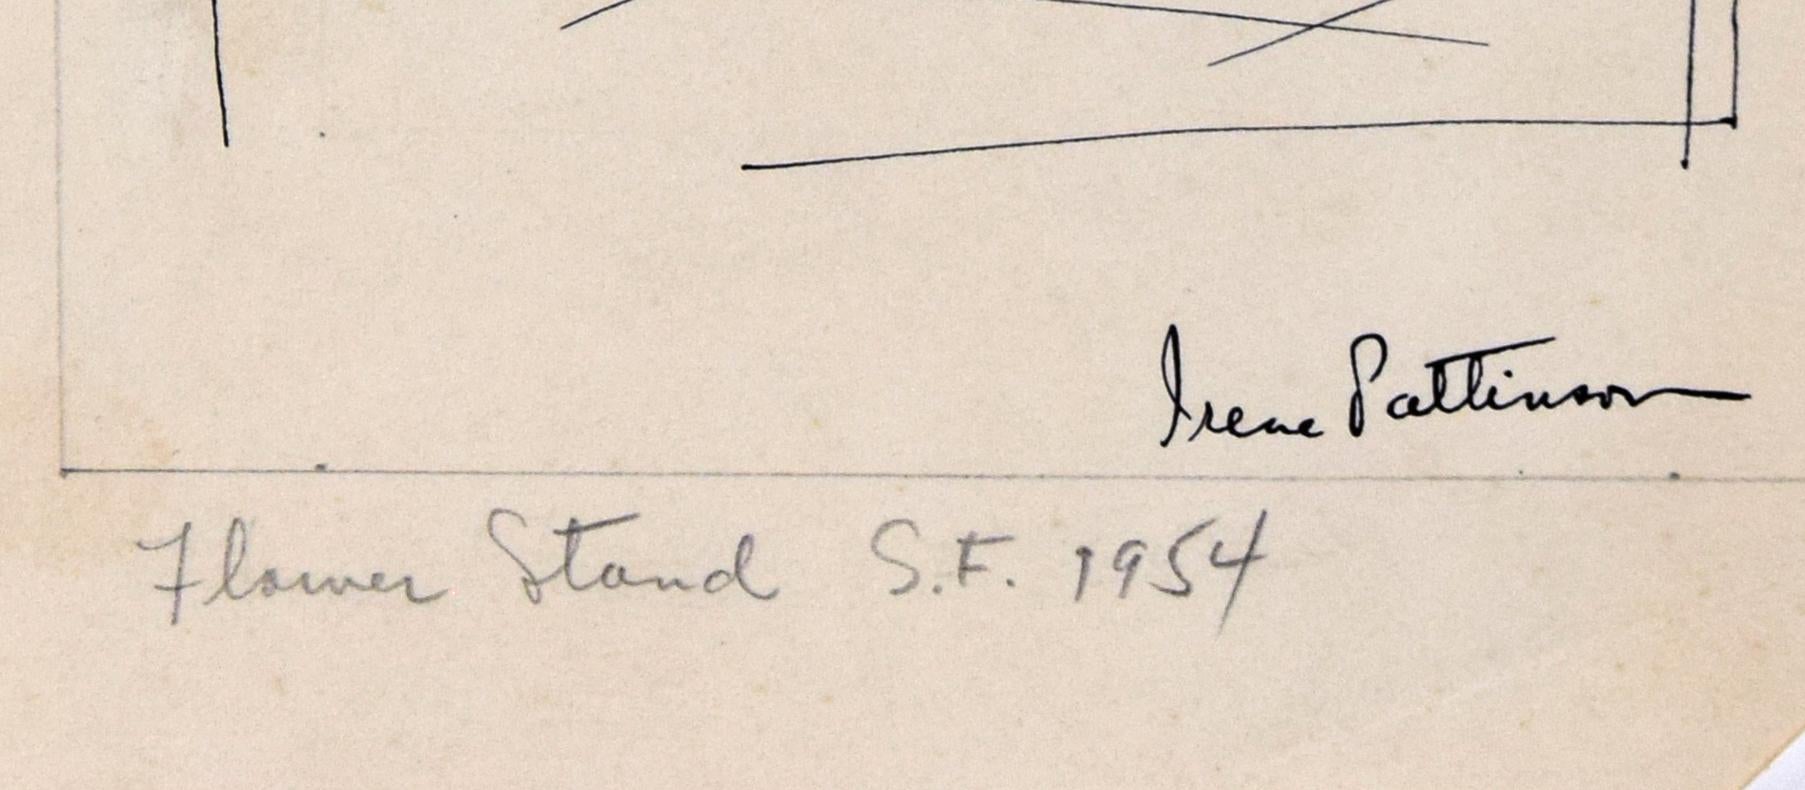 Irene Pattinson
Flower Stand S.F. 1954